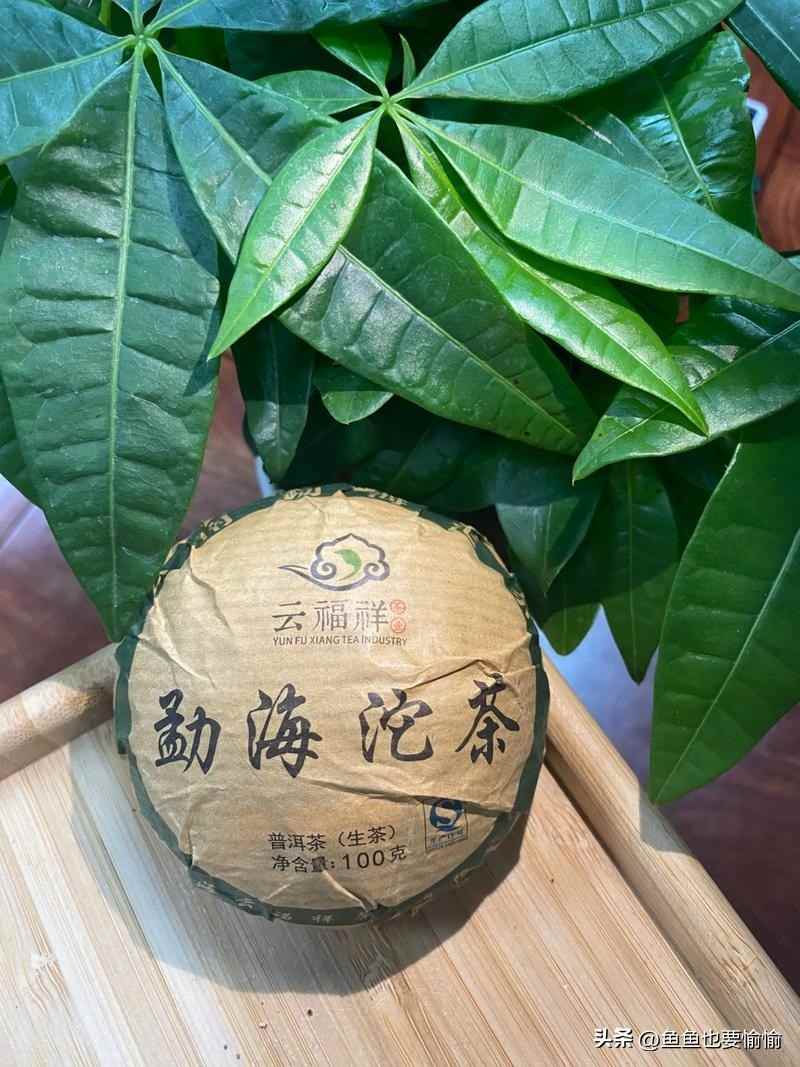 云福祥
YUN FU XIANG TEA INDUSTRY
勐海沱茶
普洱茶（生茶）
净含量:100克
头条 @鱼鱼也要愉愉